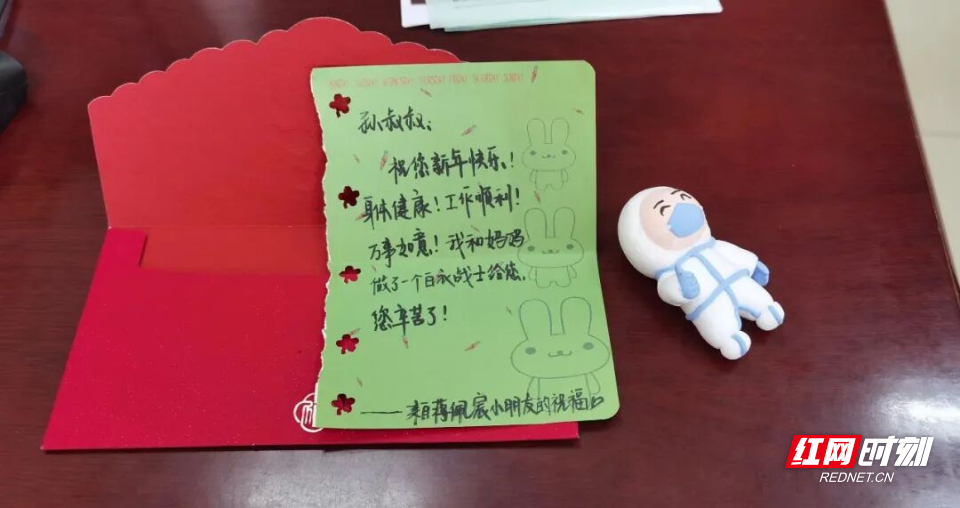 孙叔叔:
祝您新年快乐!
身体健康!工作顺利!
万事如意!我和妈妈
做了一个白衣战士给您,
您辛苦了!
——来自蒋佩宸小朋友的祝福
红网时刻
REDNET.CN